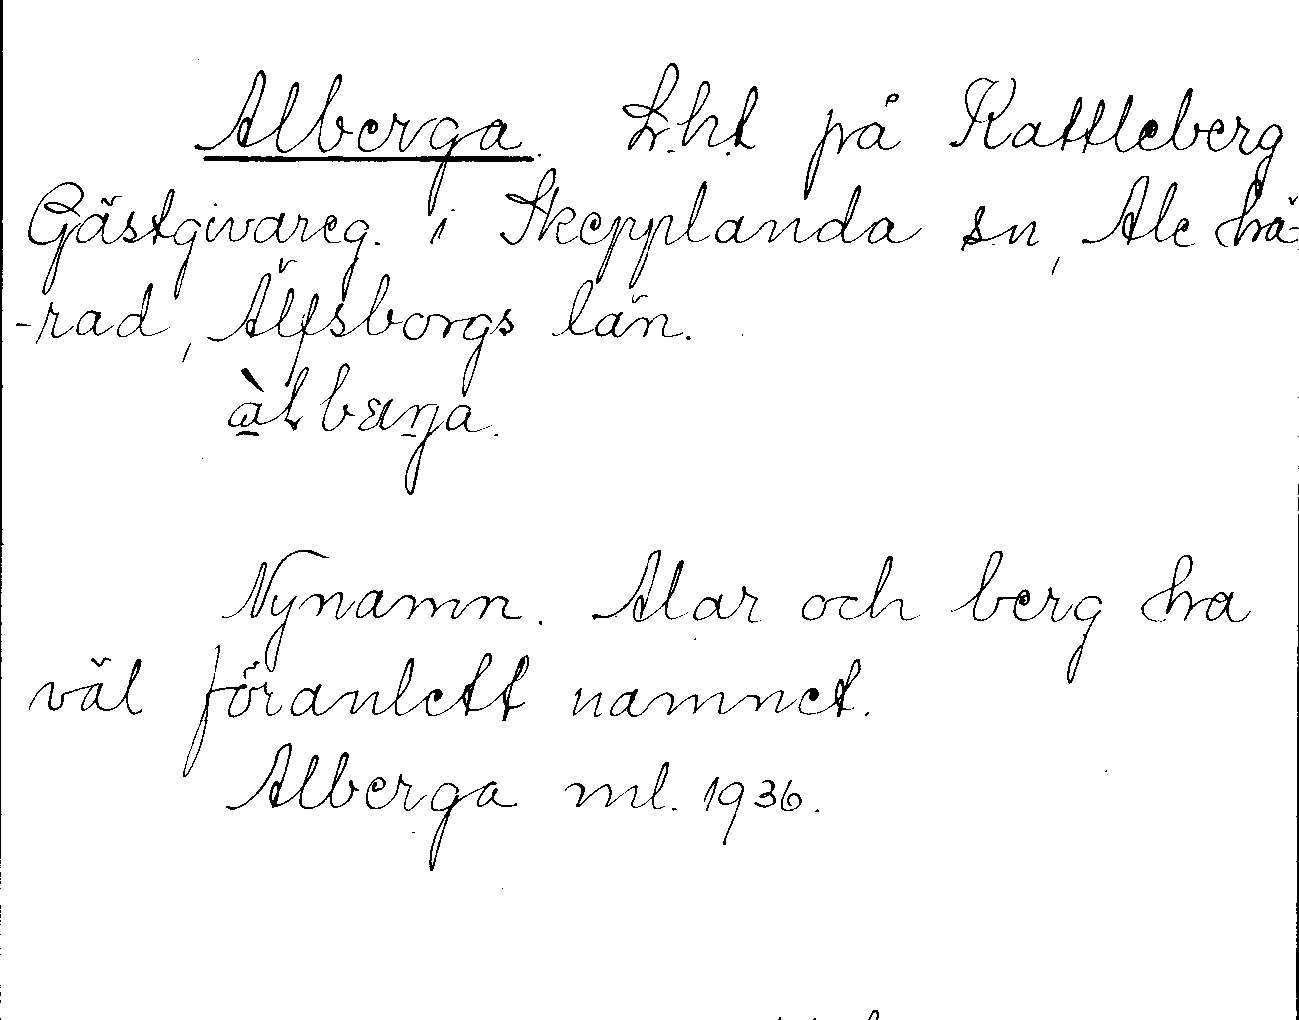 Alberga. Lht på Kattleberg
Gästgivareg. i Skepplanda sn, Ale hä-
-rad, Älfsborgs län.
Nynamn. Alar och berg ha
väl föranlett namnet.
Alberga ml. 1936.